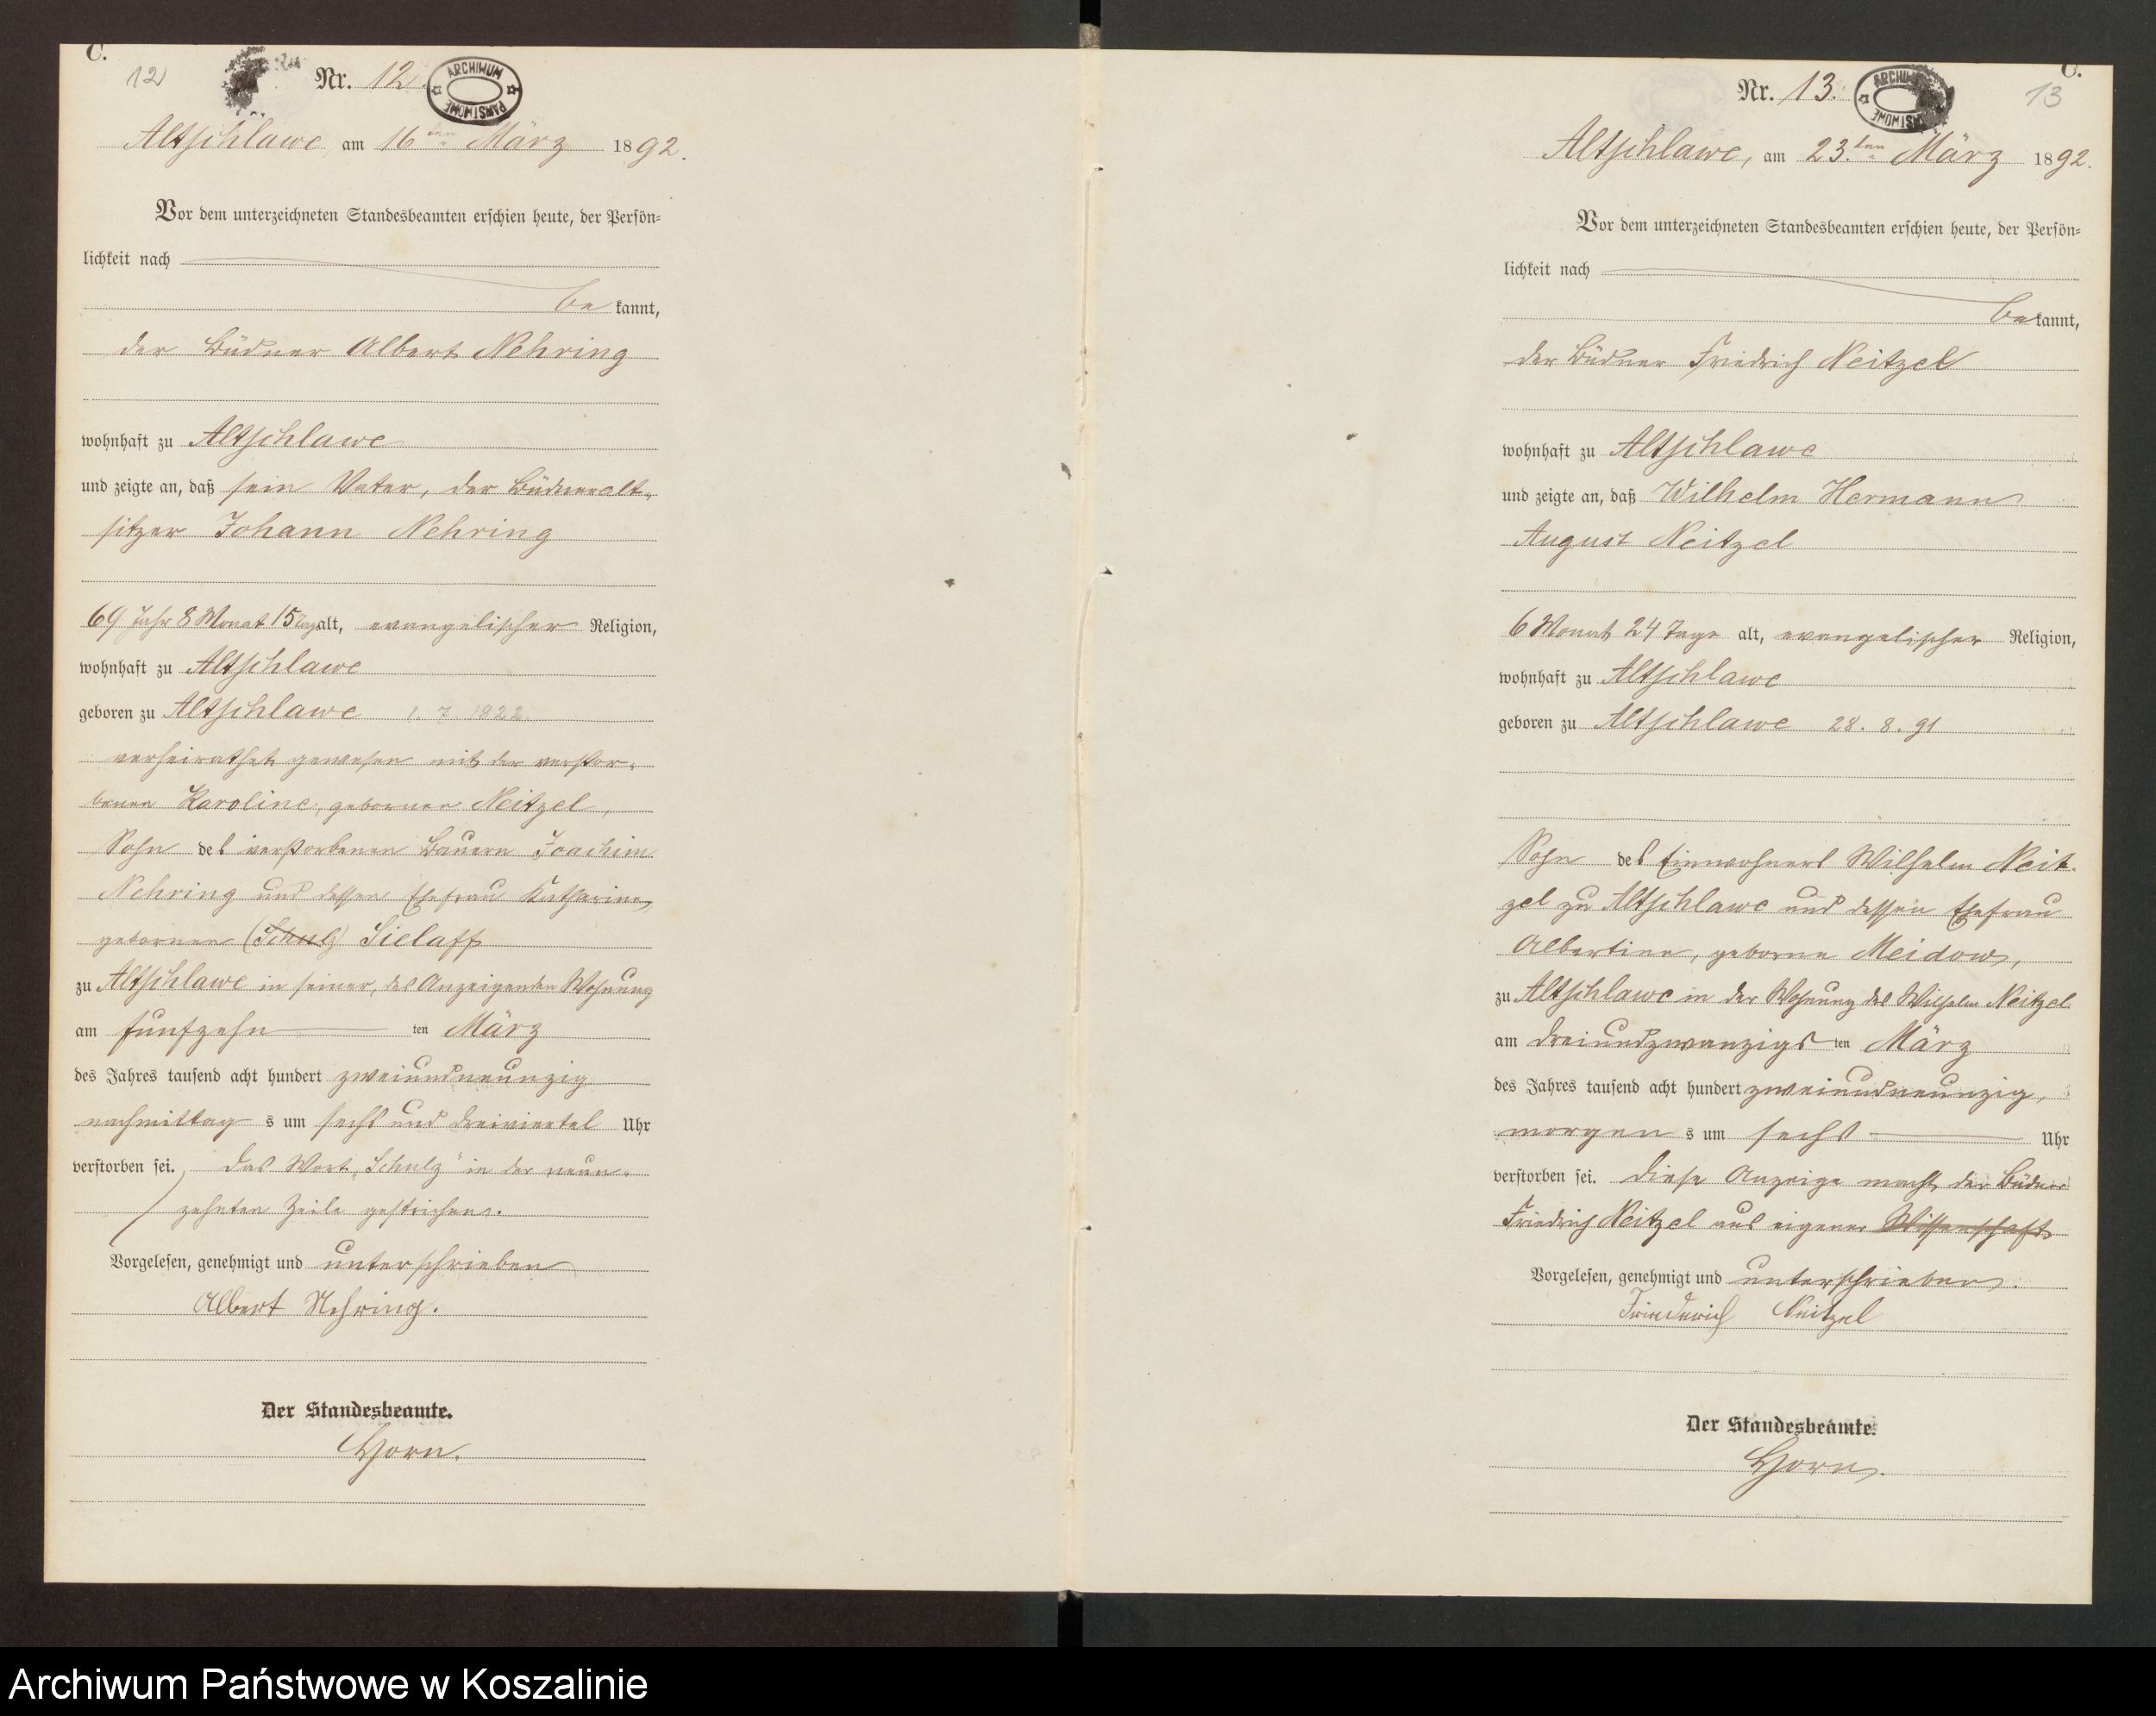 C.
12
Nr. 12.
ARCHIWUM PAŃSTWOWE
Altschlawe, am 16ten März 1892.
Vor dem unterzeichneten Standesbeamten erschien heute, der Persön-
lichkeit nach
be kannt,
der Büdner Albert Nehring
wohnhaft zu Altschlawe
und zeigte an, daß sein Vater, der Büdneralt-
sitzer Johann Nehring
69 Jahr 8 Monat 15 Tage alt, evangelischer Religion,
wohnhaft zu Altschlawe
geboren zu Altschlawe 1. 7. 1822.
verheirathet gewesen mit der verstor-
benen Karoline, geborenen Neitzel,
Sohn des verstorbenen Bauern Joachim
Nehring und dessen Ehefrau Katharine,
geborenen (Schulz) Sielaff
zu Altschlawe in seiner, des Anzeigenden Wohnung
am fünfzehn ten März
des Jahres tausend acht hundert zweiundneunzig
nachmittag s um sechs und dreiviertel Uhr
verstorben sei. Das Wort „Schulz" in der neun-
zehnten Zeile gestrichen.
Vorgelesen, genehmigt und unterschrieben
Albert Nehring.
Der Standesbeamte.
Horn.
C.
13
Nr. 13.
ARCHIWUM PAŃSTWOWE
Altschlawe, am 23.ten März 1892.
Vor dem unterzeichneten Standesbeamten erschien heute, der Persön-
lichkeit nach
be kannt,
der Büdner Friedrich Neitzel
wohnhaft zu Altschlawe
und zeigte an, daß Wilhelm Hermann
August Neitzel
6 Monat 24 Tage alt, evangelischer Religion,
wohnhaft zu Altschlawe
geboren zu Altschlawe 28. 8. 91
Sohn des Einwohners Wilhelm Neit-
zel zu Altschlawe und dessen Ehefrau
Albertine, geborne Meidow,
zu Altschlawe in der Wohnung des Wilhelm Neitzel
am dreiundzwanzigs ten März
des Jahres tausend acht hundert zweiundneunzig,
morgen s um sechs Uhr
verstorben sei. Diese Anzeige macht der Büdner
Friedrich Neitzel aus eigener Wissenschaft
Vorgelesen, genehmigt und unterschrieben.
Friederich Neitzel
Der Standesbeamte.
Horn.
Archiwum Państwowe w Koszalinie